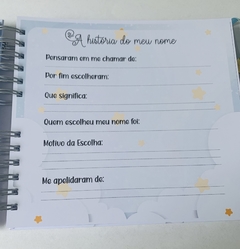 A história do meu nome
Pensaram em me chamar de:
Por fim escolheram:
Que significa:
Quem escolheu meu nome foi:
Motivo da Escolha:
Me apelidaram de: